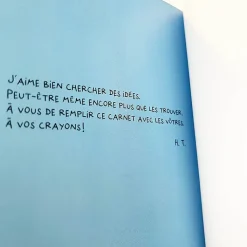 J'AIME BIEN CHERCHER DES IDÉES,
PEUT-ÊTRE MÊME ENCORE PLUS QUE LES TROUVER.
À VOUS DE REMPLIR CE CARNET AVEC LES VÔTRES.
À VOS CRAYONS!
H. T.